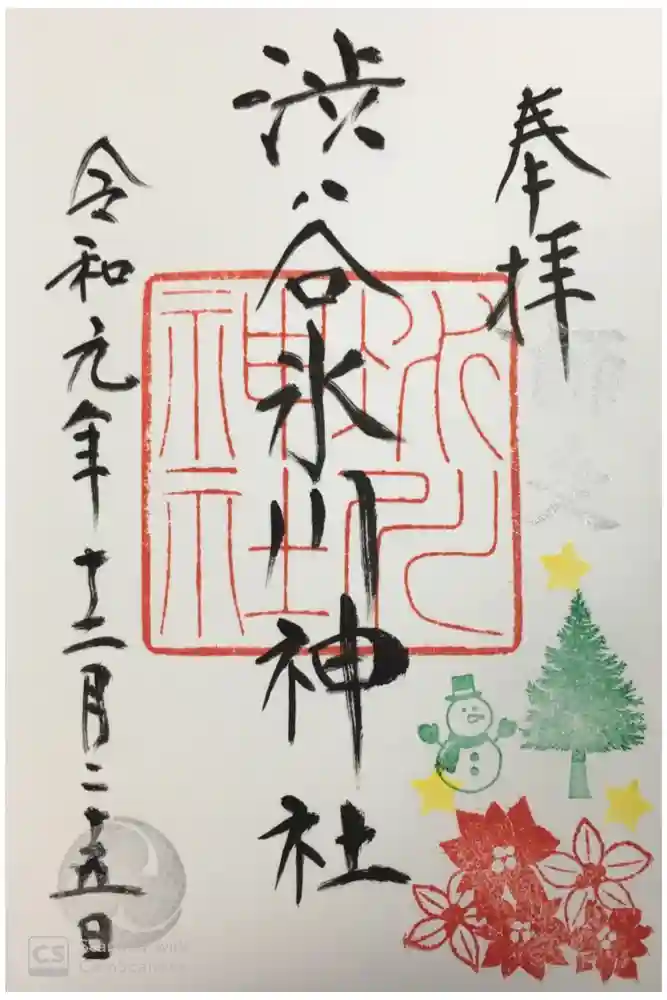 奉拝
渋谷氷川神社
氷川
神社
令和元年十二月二十五日
CS Scanned with
CamScanner